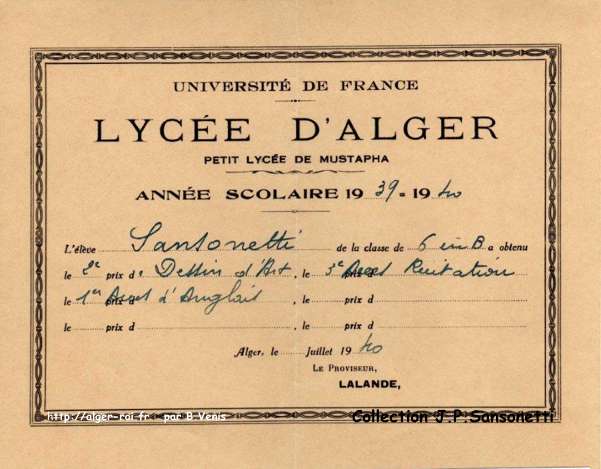 UNIVERSITÉ DE FRANCE
LYCÉE D'ALGER
PETIT LYCÉE DE MUSTAPHA
ANNÉE SCOLAIRE 1939=1940
L'élève Sansonetti de la classe de 6ème B a obtenu
le 2e prix de Dessin d'Art, le 3e Acces Récitation
le 1er Acces d'Anglais, le prix d
le prix d, le prix d
Alger, le Juillet 1940
LE PROVISEUR,
LALANDE,
http://alger-roi.fr - par B.Venis
Collection J.P.Sansonetti